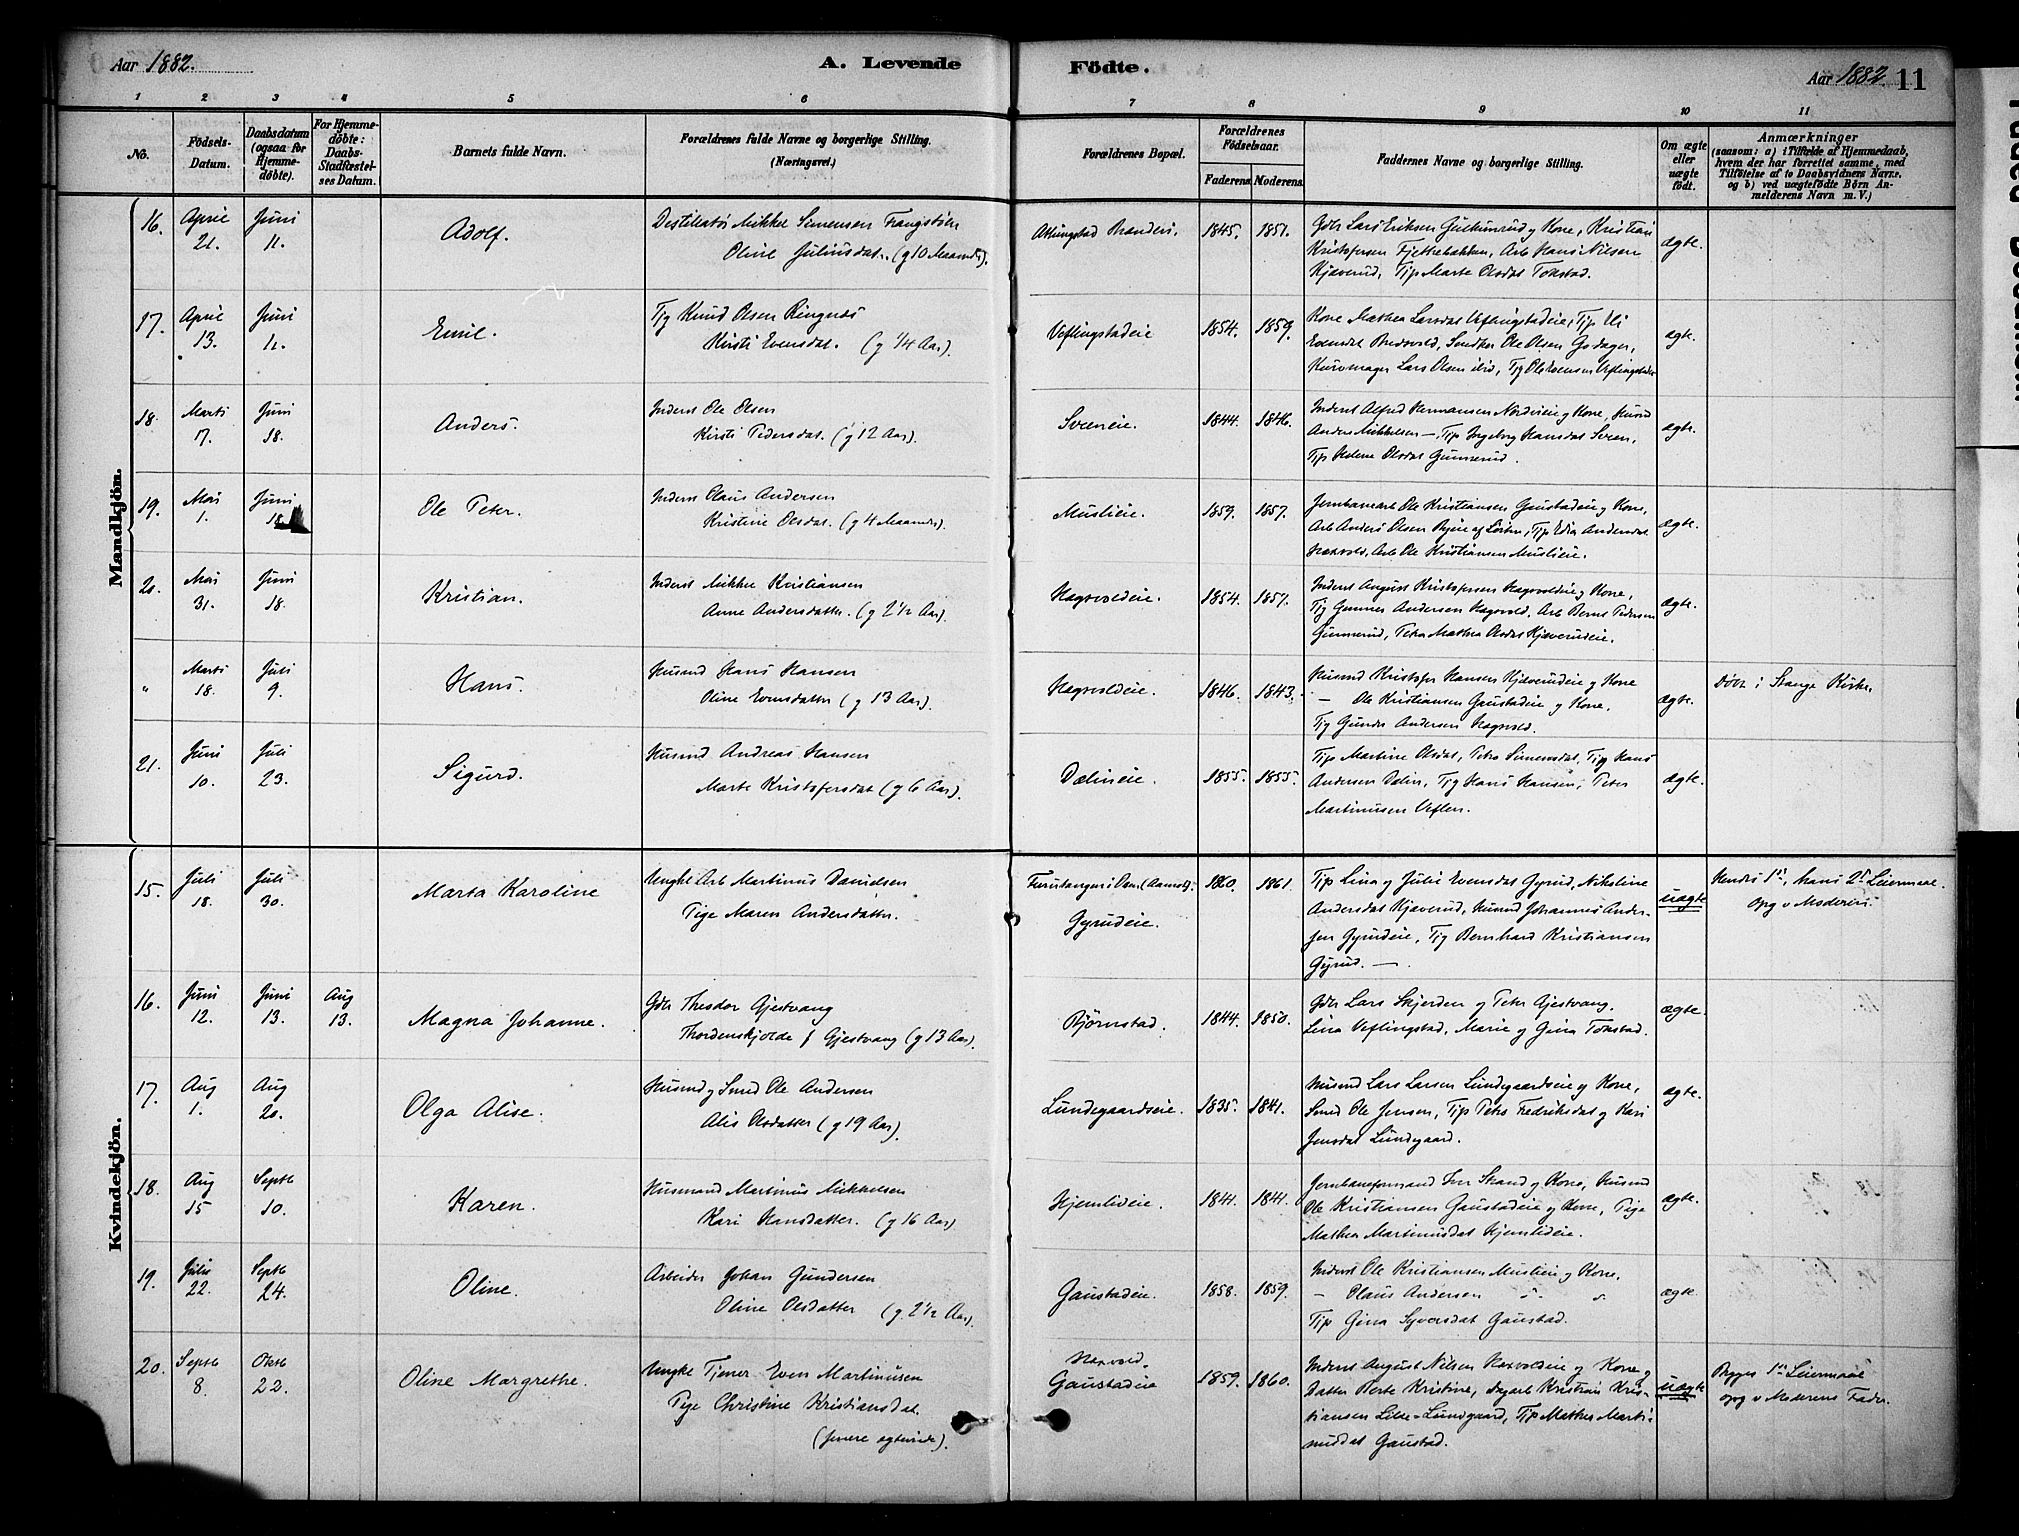 Aar 1882.
A. Levende Födte.
Aar 1882. 11
1 2 3 4 5 6 7 8 9 10 11
No.
Födsels-Datum.
Daabsdatum (ogsaa for Hjemme-döbte).
For Hjemme-döbte: Daabs-Stadfæstel-ses Datum.
Barnets fulde Navn.
Forældrenes fulde Navne og borgerlige Stilling. (Næringsvei.)
Forældrenes Bopæl.
Forældrenes Födselsaar.
Faderens Moderens
Faddernes Navne og borgerlige Stilling.
Om ægte eller uægte födt.
Anmærkninger
(saasom: a) i Tilfælde af Hjemmedaab, hvem der har forrettet samme, med Tilföielse af to Daabsvidners Navne. og b) ved uægtefödte Börn An-melderens Navn m. V.)
Mandkjön.
16. April 21. Juni 11. Adolf.
Destillatör Mikkel Simensen
Oline Juliusdat. (g 10 Maaned).
Brænderi. 1845. 1851.
Gdr Lars Eriksen og Kone, Kristian
Kristofersen Fjettrebakken, Arb Hans Nilsen
Kjæverud, Tjp Marte Olsdat Tokstad.
ægte.
17. April 13. Juni 11. Emil.
Tjg Knud Olsen Ringnæs
Kirsti Evensdat. (g 1/4 Aar).
Veflingstadeie 1854. 1859.
Kone Mathea Larsdat Veflingstadeie, Tjp
Evensdat Bredvold, Ole Olsen
Kurvmager Lars Olsen ibid, Tjg Ole Evensen Veflingstadeie
ægte.
18. Marts 17. Juni 18. Anders.
Inderst Ole Olsen
Kirsti Pedersdat. (g 12 Aar).
Sveneie. 1844. 1846.
Inderst Alfred Hermansen og Kone, Husmd
Anders Mikkelsen —, Tjp Ingeborg Hansdat Sveen,
Tjp Helene Olsdat Gunnerud.
ægte.
19. Mai 1. Juni 18. Ole Peter.
Inderst Claus Andersen
Kristine Olsdat. (g 4 Maaned).
Muslieie. 1859. 1857.
Jernbanearb Ole Kristiansen Gaustadeie og Kone,
Arb Anders Olsen af Löten, Tjp Andersdat
Arb Ole Kristiansen Muslieie.
ægte.
20. Mai 31. Juni 18. Kristian.
Inderst Mikkel Kristiansen
Anne Andersdatter. (g 2 1/2 Aar).
Hagsvoldeie. 1854. 1857.
Inderst August Kristofersen Hagsvoldeie og Kone,
Tjg Gunner Andersen Hagsvold, Arb Bernt Pedersen
Gunnerud, Petra Mathea Olsdat Kjæverudeie.
ægte.
" Marts 18. Juli 9. Hans.
Husmd Hans Hansen
Oline Evensdatter (g 13 Aar).
Hagsvoldeie. 1846. 1843.
Husmd Kristofer Hansen Kjæverudeie og Kone
— Ole Kristiansen Gaustadeie og Kone,
Tjg Gunder Andersen Hagsvold.
ægte.
Döbt i Stange Kirke.
21. Juni 10. Juli 23. Sigurd.
Husmd Andreas Hansen
Marte Kristofersdat (g 6 Aar).
Dælineie. 1855. 1855.
Tjp Martine Olsdat, Petra Simensdat, Tjg Hans
Andersen Dælin, Tjg Hans Hansen, Peter
Martinusen Veflen.
ægte.
Kvindekjön.
15. Juli 18. Juli 30. Marta Karoline
Ungke Arb Martinus Danielsen
Pige Maren Andersdatter.
Furutangen i Osen (Aamodt).
Gyrudeie.
1860. 1861.
Tjp Lina og Julie Evensdat Gyrud, Nikoline
Andersdat Kjæverud, Husmd Johannes Ander-
sen Gyrudeie, Tjg Bernhard Kristiansen
Gyrud. —.
uægte
Hendes 1ste, hans 2det Leiermaal.
Opg v Moderen.
16. Juni 12. Juni 13. Aug 13. Magna Johanne.
Gdr Theodor Gjestvang
Thordenskjolde f Gjestvang (g 13 Aar).
Björnstad. 1844. 1850.
Gdr Lars Skjerden og Peter Gjestvang.
Lina Veflingstad, Marie og Gina Tokstad.
ægte.
17. Aug 1. Aug 20. Olga Alise.
Husmd og Smed Ole Andersen
Alis Olsdatter (g 19 Aar).
Lundegaardseie. 1835. 1841.
Husmd Lars Larsen Lundegaardseie og Kone,
Smed Ole Jensen, Tjp Petra Fredriksdat og Kari
Jensdat Lundgaard.
ægte.
18. Aug 15 Septb 10. Karen.
Husmand Martinus Mikkelsen
Kari Hansdatter. (g 16 Aar)
Hjemlideie. 1841. 1841.
Jernbaneformand Iver Skand og Kone, Husmd
Ole Kristiansen Gaustadeie og Kone, Pige
Mathea Martinusdat Hjemlideie.
ægte.
19. Julii 22. Septb 24. Oline.
Arbeider Johan Gundersen
Oline Olsdatter (g. 2 1/2 Aar).
Gaustadeie. 1858. 1859.
Inderst Ole Kristiansen Muslieie og Kone.
— Claus Andersen
Tjp Gina Syversdat Gaustad.
ægte.
20. Septb 8. Oktb 22. Oline Margrethe.
Ungke Tjener Even Martinusen
Pige Christine Kristiansdat.
(senere egteviede).
Gaustadeie
1859. 1860.
Inderst August Nilsen og Kone og
Datter Kristine, Kristian Kris-
tiansen Lille-Lundgaard, Tjp Mathea Marti-
nusdat Gaustad.
uægte
Begges 1ste Leiermaal
opg v Moderens Fader.